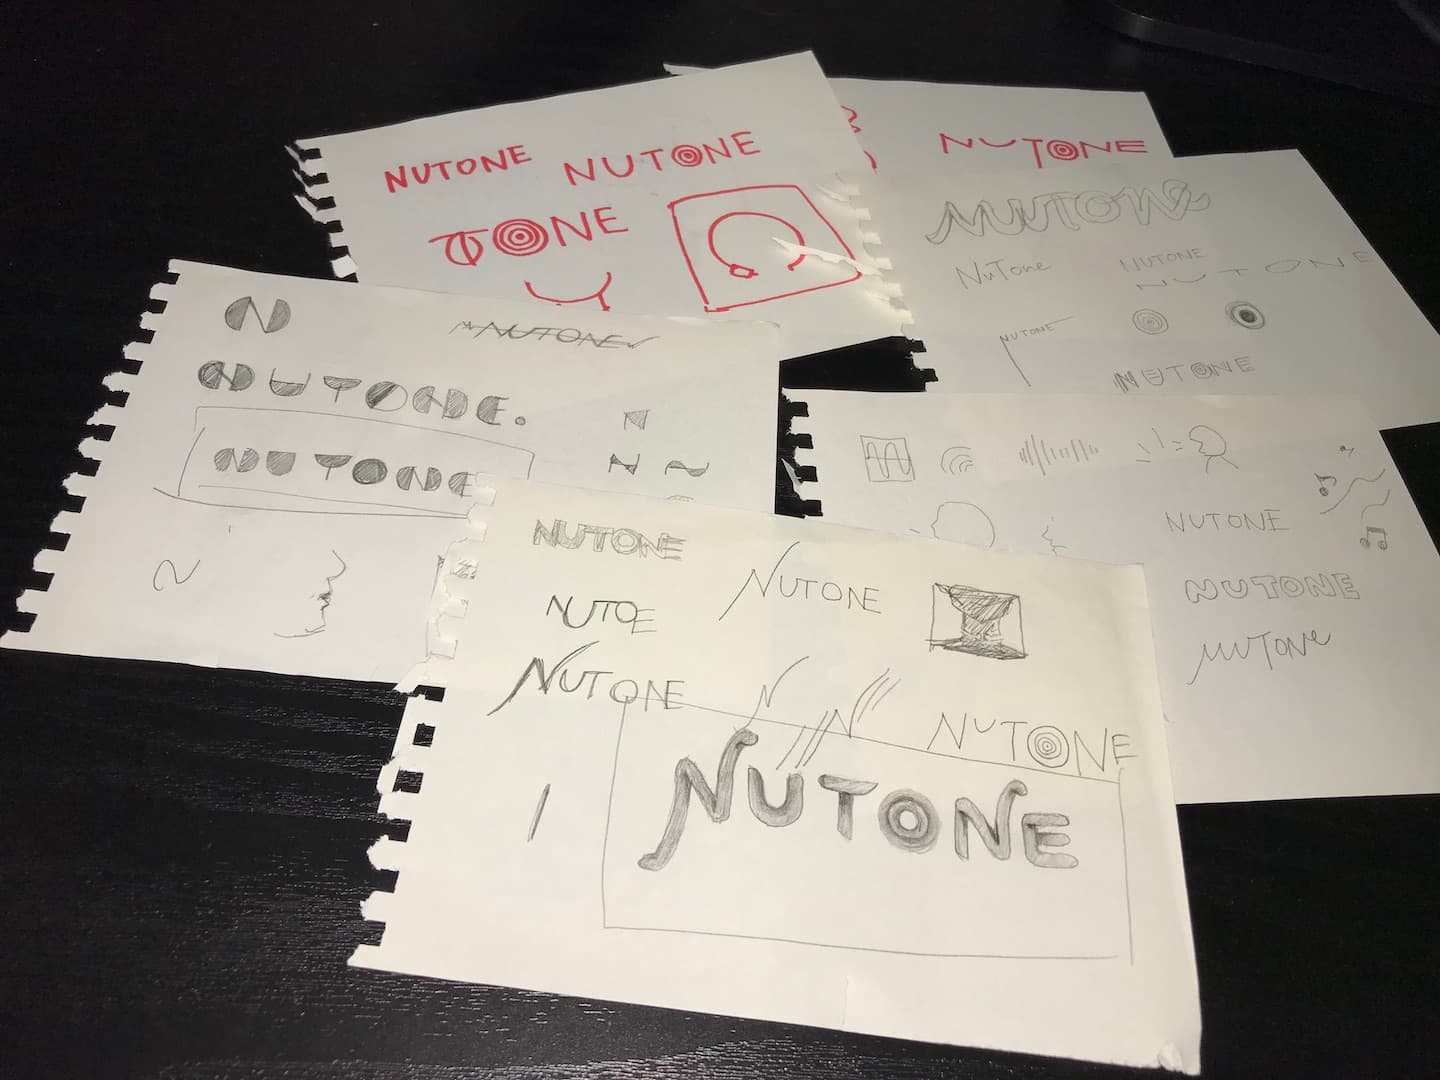 NUTONE NUTONE
TONE
NUTONE
NUTONE
NuTone
NUTONE
NUTONE
NUTONE
NUTONE
N
NUTONE
NUTONE.
NUTONE
N
N
NUTONE
NUTONE
NUTONE
NUTONE
NUTONE
NUTOE
NUTONE
N
N
NUTONE
NUTONE